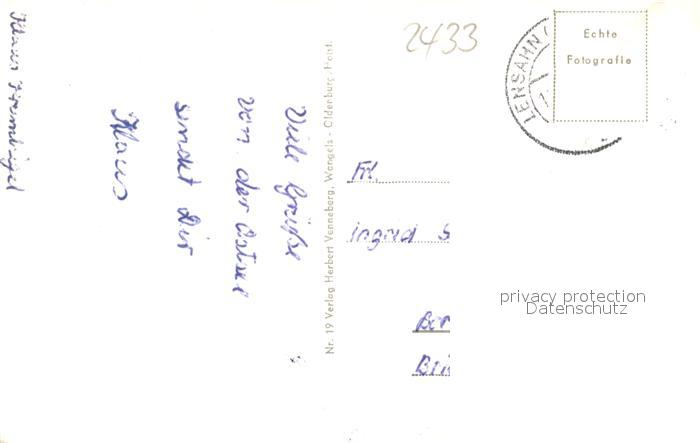 2433
LENSAHN
Echte
Fotografie
Viele Grüße
von der Ostsee
sendet Dir
Klaus
Klaus
Nr. 19 Verlag Herbert Venneberg, Wangels - Oldenburg-Holst.
Frl.
Ingrid S
Ber
privacy protection
Datenschutz